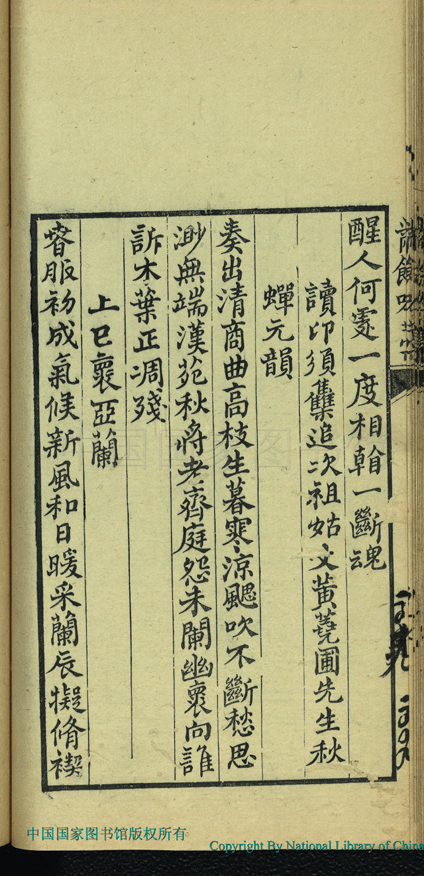 醒人何處一度相翰一斷魂
讀印須集追次祖姑丈黃蕘圃先生秋
蟬元韻
奏出清商曲高枝生暮寒涼颸吹不斷愁思
渺無端漢苑秋將老齊庭怨未闌幽褱向誰
訴木葉正凋殘
上巳褱亞蘭
春服初成氣候新風和日暖采蘭辰擬脩禊
中国国家图书馆版权所有
Copyright By National Library of China